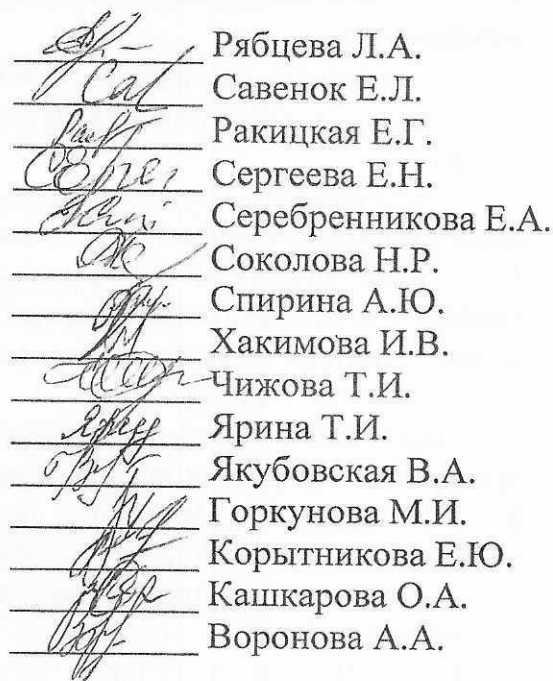 Рябцева Л.А.
Савенок Е.Л.
Ракицкая Е.Г.
Сергеева Е.Н.
Серебренникова Е.А.
Соколова Н.Р.
Спирина А.Ю.
Хакимова И.В.
Чижова Т.И.
Ярина Т.И.
Якубовская В.А.
Горкунова М.И.
Корытникова Е.Ю.
Кашкарова О.А.
Воронова А.А.